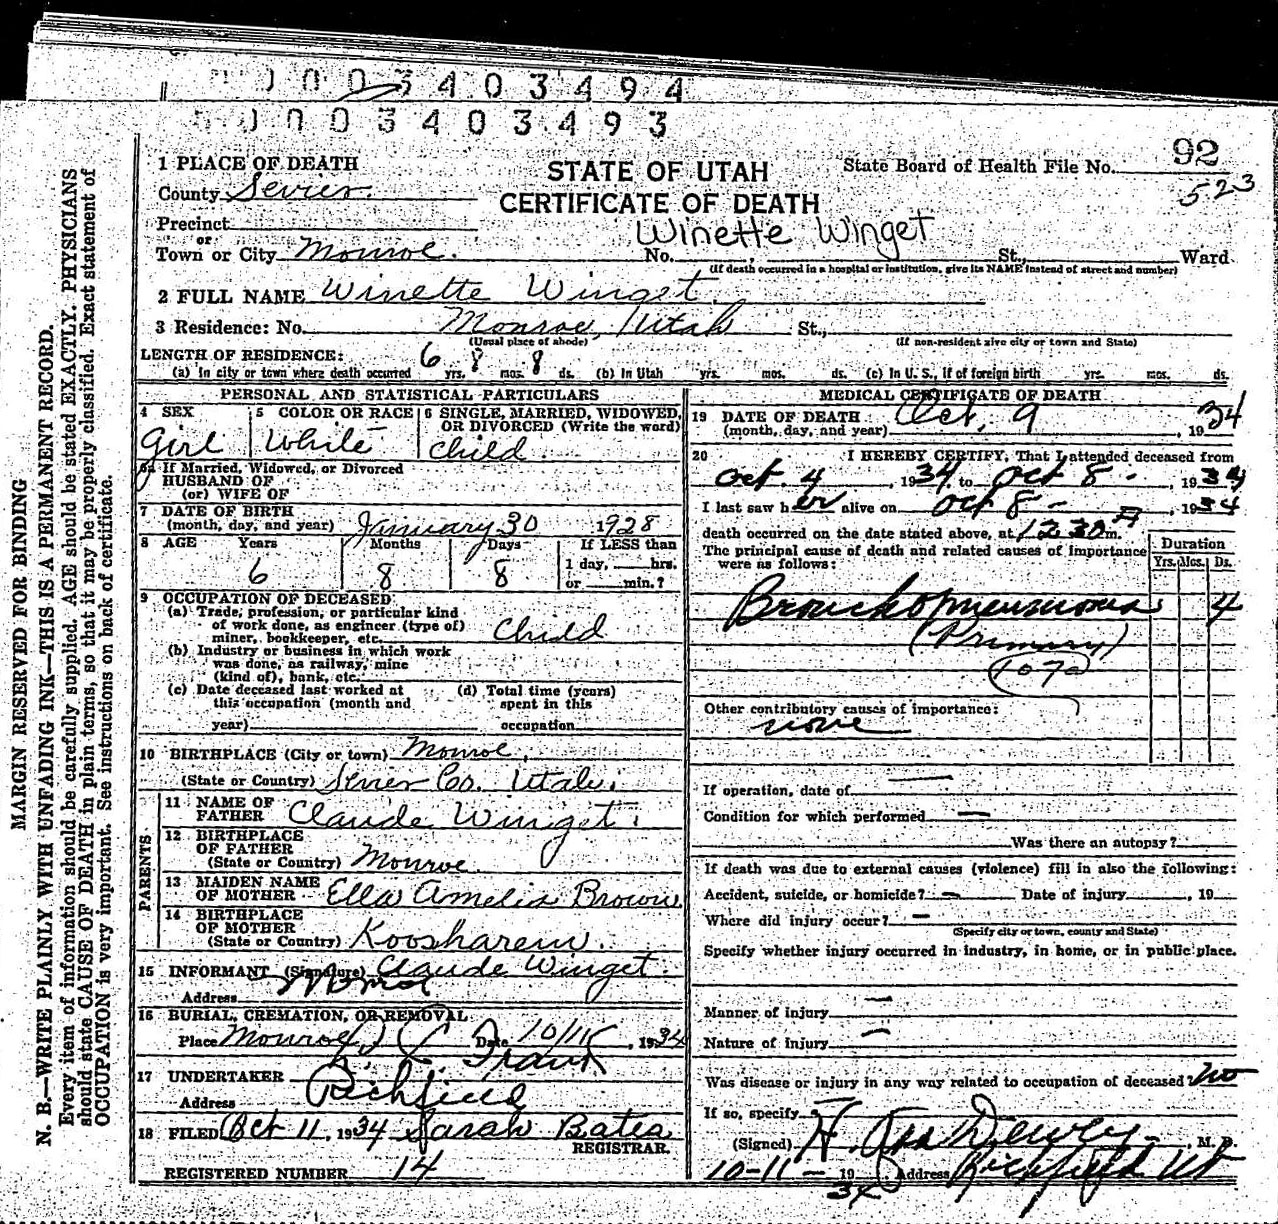 0003403494
0003403493
92
523
1 PLACE OF DEATH
STATE OF UTAH
State Board of Health File No.
County Sevier.
CERTIFICATE OF DEATH
Precinct
Winette Winget
or
Town or City Monroe. No. , St., Ward
(If death occurred in a hospital or institution, give its NAME instead of street and number)
2 FULL NAME Winette Winget.
3 Residence: No. Monroe, Utah St.,
(Usual place of abode) (If non-resident give city or town and State)
LENGTH OF RESIDENCE:
(a) In city or town where death occurred 6 yrs. 8 mos. 8 ds. (b) In Utah yrs. mos. ds. (c) In U. S., if of foreign birth yrs. mos. ds.
PERSONAL AND STATISTICAL PARTICULARS
4 SEX 5 COLOR OR RACE 6 SINGLE, MARRIED, WIDOWED, OR DIVORCED (Write the word)
Girl White Child.
If Married, Widowed, or Divorced
HUSBAND OF
(or) WIFE OF
7 DATE OF BIRTH
(month, day, and year) January 30 1928
8 AGE Years Months Days If LESS than
1 day, hrs.
6 8 8 or min.?
9 OCCUPATION OF DECEASED
(a) Trade, profession, or particular kind
of work done, as engineer (type of)
miner, bookkeeper, etc. Child
(b) Industry or business in which work
was done, as railway, mine
(kind of), bank, etc.
(c) Date deceased last worked at
this occupation (month and
year)
(d) Total time (years)
spent in this
occupation
10 BIRTHPLACE (City or town) Monroe,
(State or Country) Sevier Co. Utah.
PARENTS
11 NAME OF
FATHER Claude Winget.
12 BIRTHPLACE
OF FATHER
(State or Country) Monroe.
13 MAIDEN NAME
OF MOTHER Ella Amelia Brown
14 BIRTHPLACE
OF MOTHER
(State or Country) Koosharem.
15 INFORMANT (Signature) Claude Winget.
Address Monroe
16 BURIAL, CREMATION, OR REMOVAL
Place Monroe Date 10/11 , 1934
17 UNDERTAKER
Address Richfield
18 FILED Oct 11, 1934 Sarah Bates
REGISTRAR.
REGISTERED NUMBER 14
MEDICAL CERTIFICATE OF DEATH
19 DATE OF DEATH
(month, day, and year) Oct. 9 , 1934
20 I HEREBY CERTIFY, That I attended deceased from
Oct. 4 , 1934 to Oct 8 - , 1934
I last saw her alive on Oct 8 - , 1934
death occurred on the date stated above, at 12 30 A m.
The principal cause of death and related causes of importance
were as follows:
Duration
Yrs. Mos. Ds.
Bronchopneumonia 4
(Primary)
107a
Other contributory causes of importance:
none
If operation, date of
Condition for which performed
Was there an autopsy?
If death was due to external causes (violence) fill in also the following:
Accident, suicide, or homicide? Date of injury , 19
Where did injury occur?
(Specify city or town, county and State)
Specify whether injury occurred in industry, in home, or in public place.
Manner of injury
Nature of injury
Was disease or injury in any way related to occupation of deceased? no
If so, specify
(Signed) Dewey , M. D.
10-11- 1934 Address Richfield Ut
MARGIN RESERVED FOR BINDING
N. B.—WRITE PLAINLY WITH UNFADING INK—THIS IS A PERMANENT RECORD.
Every item of information should be carefully supplied. AGE should be stated EXACTLY. PHYSICIANS
should state CAUSE OF DEATH in plain terms, so that it may be properly classified. Exact statement of
OCCUPATION is very important. See instructions on back of certificate.